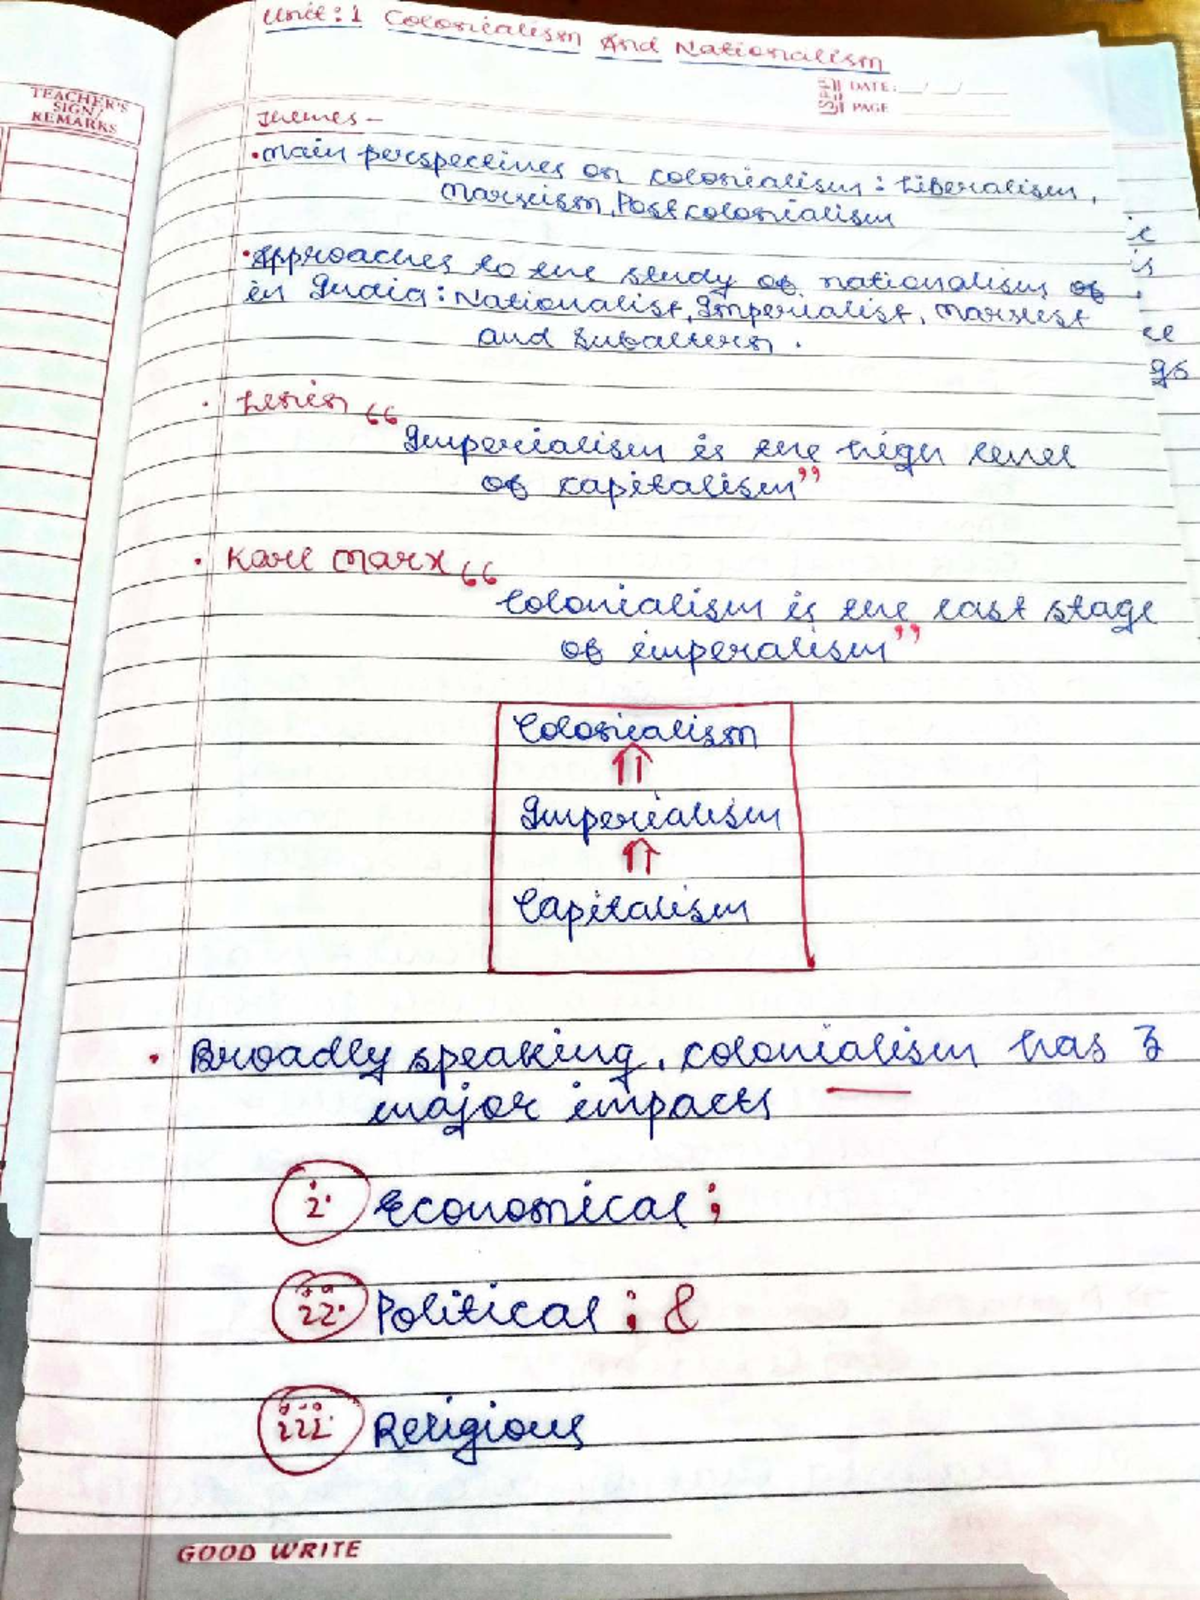 Unit:1 Colonialism And Nationalism
TEACHER'S
SIGN/
REMARKS
DATE: __/__/__
PAGE
Themes -
• Main perspectives on colonialism: Liberalism,
Marxism, Postcolonialism
• Approaches to the study of nationalism of
in India: Nationalist, Imperialist, Marxist
and Subaltern.
• Lenin "
Imperialism is the high level
of capitalism"
• Karl Marx "
Colonialism is the last stage
of imperalism"
Colonialism
⇑
Imperialism
⇑
Capitalism
• Broadly speaking, colonialism has 3
major impacts
i. Economical;
ii. Political; &
iii. Religious
GOOD WRITE